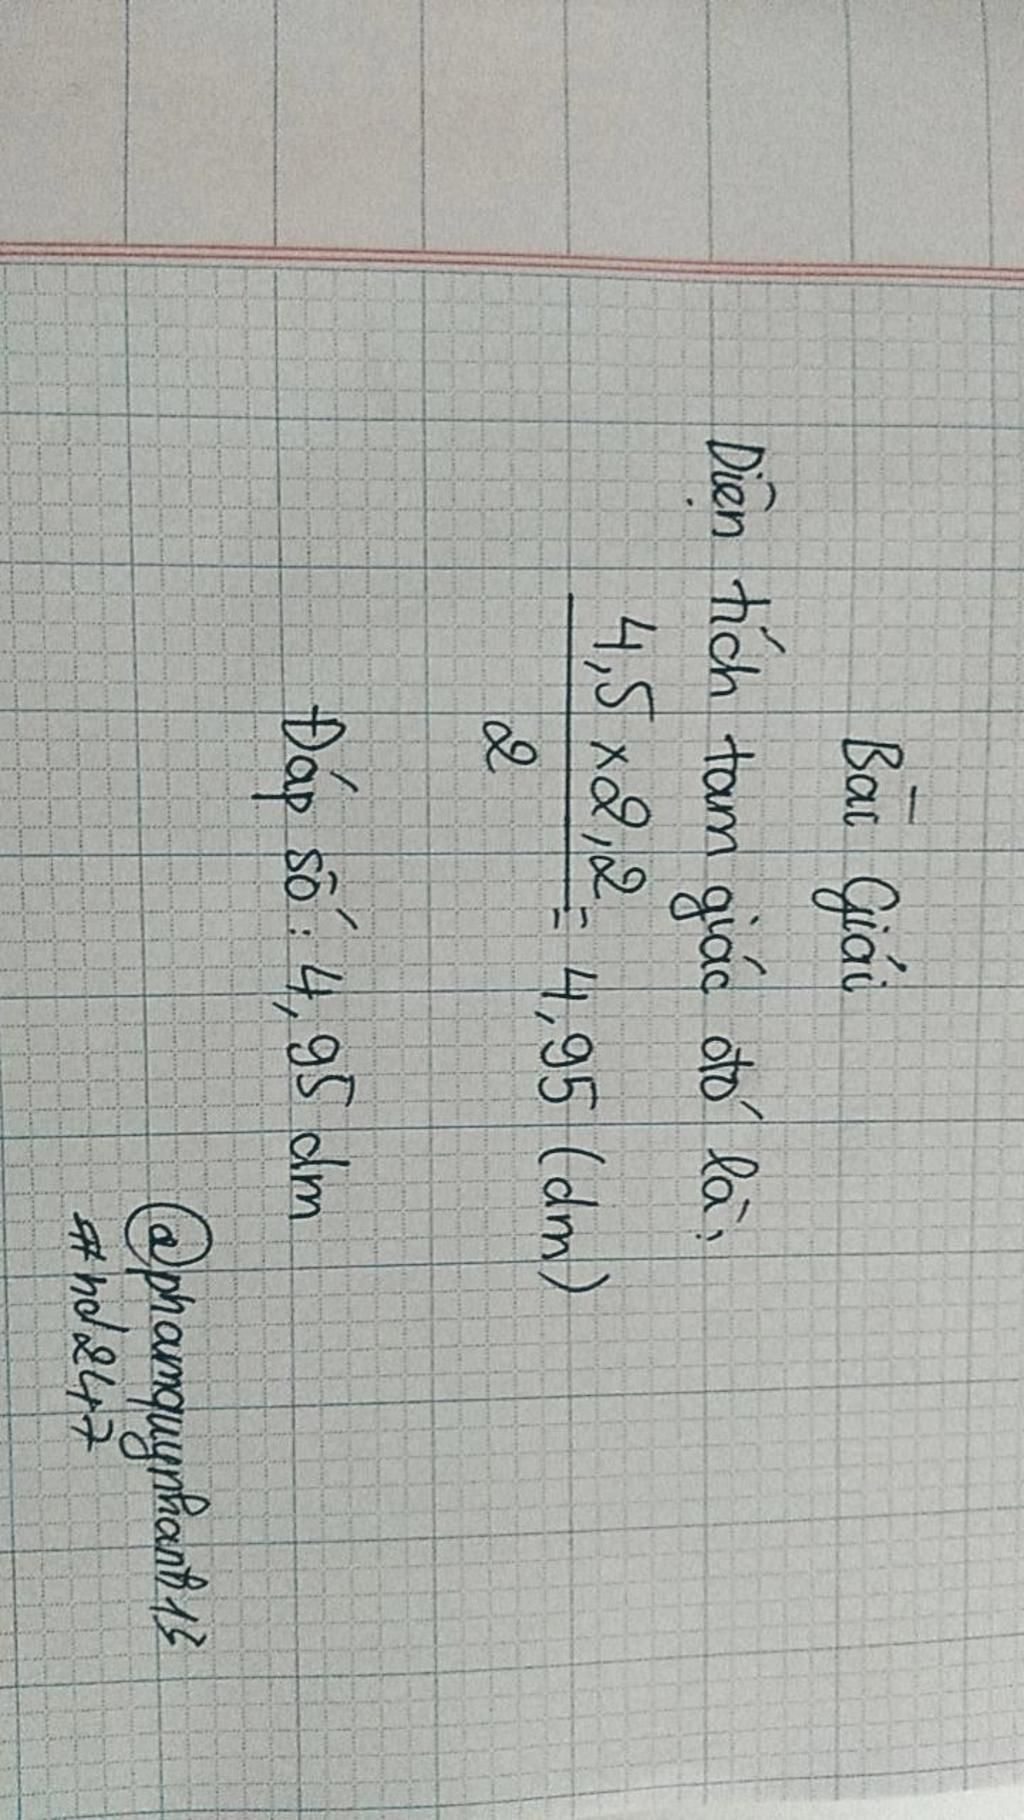 Bài Giải
Diện tích tam giác đó là:
4,5 x 2,2 = 4,95 (dm)
2
Đáp số: 4,95 dm
@phamquynhanh13
#hd247